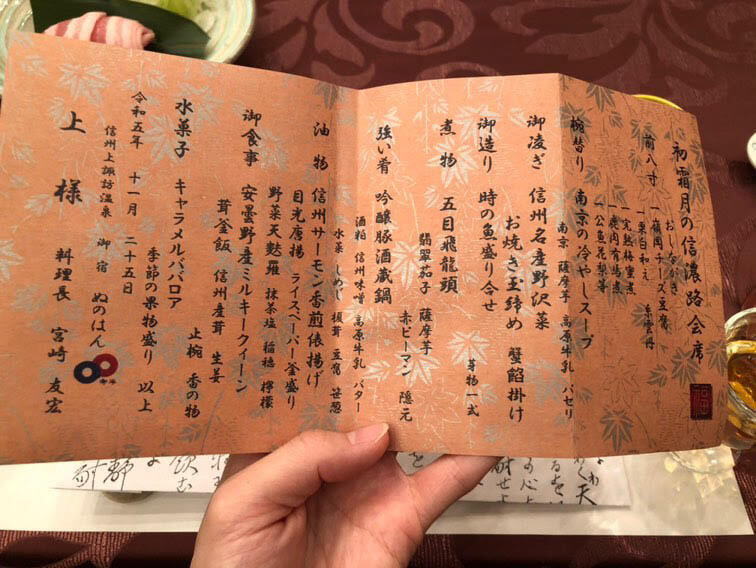 初霜月の信濃路会席
おしながき
前八寸
一嶺岡チーズ豆腐
糸雲丹
一栗白和え
完熟梅蜜煮
一鹿肉有馬煮
一公魚花梨等
椀替り 南京の冷やしスープ
南京 薩摩芋 高原牛乳 パセリ
御凌ぎ 信州名産野沢菜
お焼き玉締め 蟹餡掛け
御造り 時の魚盛り合せ
芽物一式
煮物 五目飛龍頭
翡翠茄子 薩摩芋
赤ピーマン 隠元
強い肴 吟醸豚酒蔵鍋
酒粕 信州味噌 高原牛乳 バター
水菜 しめじ 榎茸 豆腐 笹葱
油物 信州サーモン香煎俵揚げ
目光唐揚 ライスペーパー釜盛り
野菜天麩羅 抹茶塩 稲穂 檸檬
御食事 安曇野産ミルキークィーン
茸釜飯 信州産茸 生姜
止椀 香の物
水菓子 キャラメルババロア
季節の果物盛り 以上
令和五年 十一月 二十五日
信州上諏訪温泉 御宿 ぬのはん
上様 料理長 宮崎 友宏